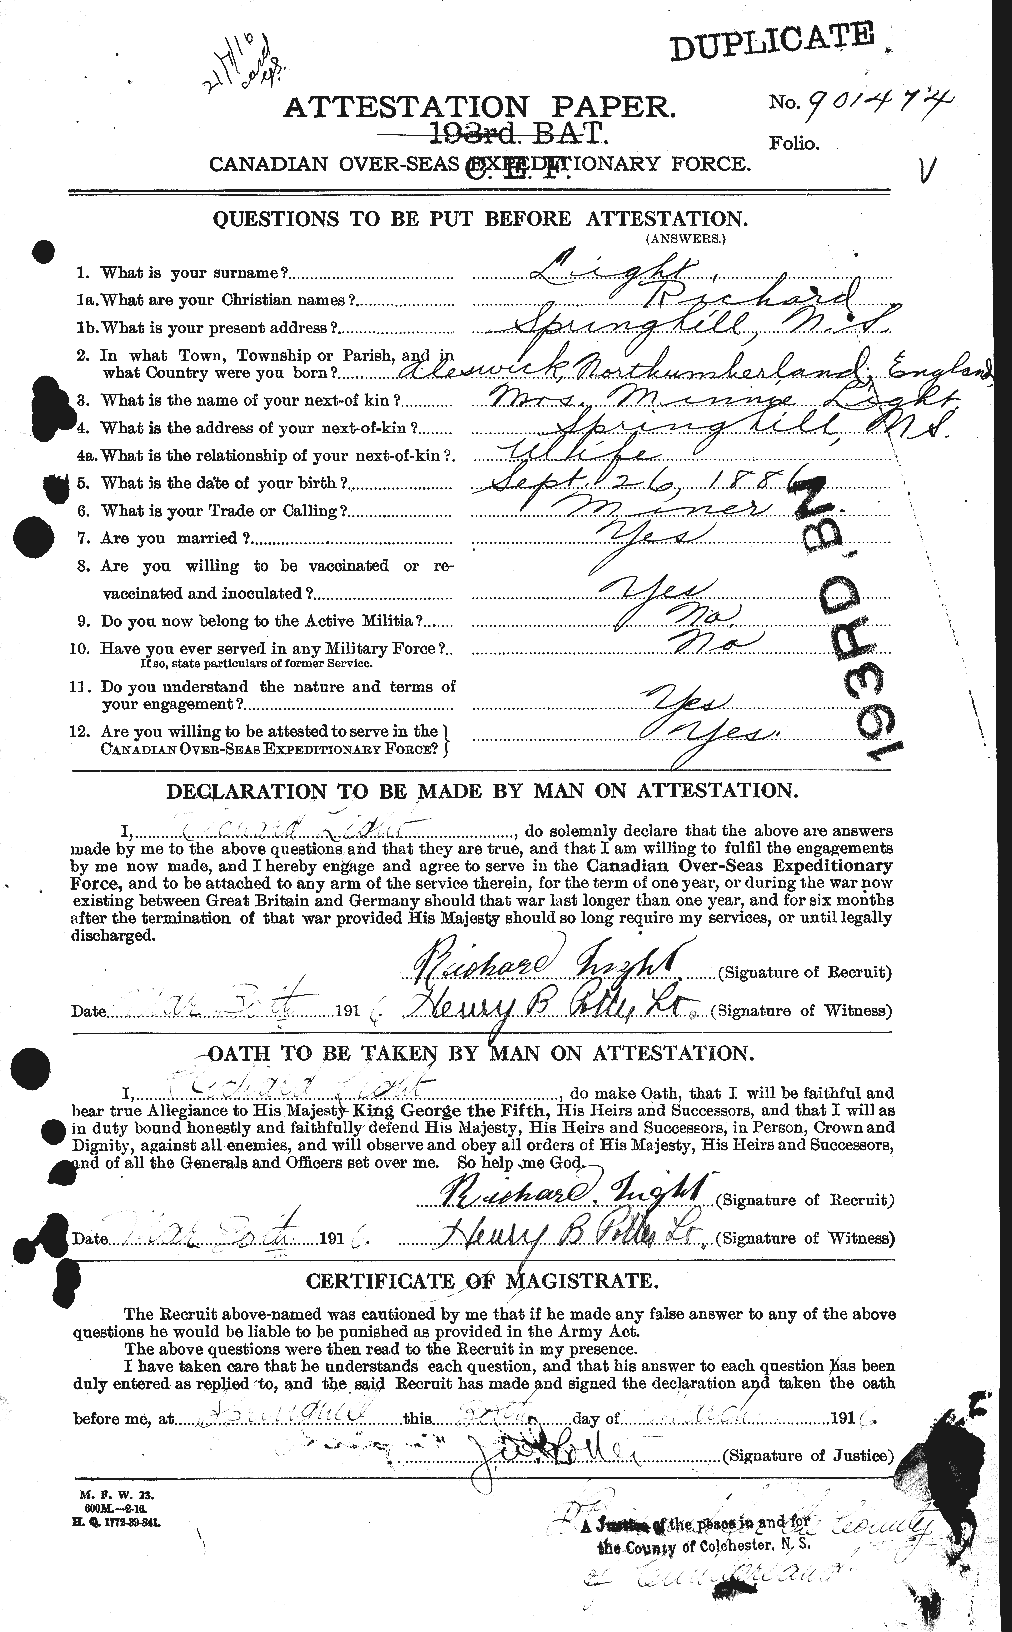 DUPLICATE
21/7/16
ATTESTATION PAPER.
No. 901474
193rd. BAT.
Folio.
CANADIAN OVER-SEAS EXPEDITIONARY FORCE.
C. E. F.
V
QUESTIONS TO BE PUT BEFORE ATTESTATION.
(ANSWERS.)
1. What is your surname? Light,
1a. What are your Christian names? Richard
1b. What is your present address? Springhill, N.S.
2. In what Town, Township or Parish, and in
what Country were you born? Aleswick, Northumberland, England,
3. What is the name of your next-of kin? Mrs. Minnie Light,
4. What is the address of your next-of-kin? Springhill, N.S.
4a. What is the relationship of your next-of-kin? Wife
5. What is the date of your birth? Sept. 26, 1886
6. What is your Trade or Calling? Miner.
7. Are you married? Yes
8. Are you willing to be vaccinated or re-
vaccinated and inoculated? Yes
9. Do you now belong to the Active Militia? No.
10. Have you ever served in any Military Force? No
If so, state particulars of former Service.
11. Do you understand the nature and terms of
your engagement? Yes
12. Are you willing to be attested to serve in the
CANADIAN OVER-SEAS EXPEDITIONARY FORCE? Yes.
193RD. BN
DECLARATION TO BE MADE BY MAN ON ATTESTATION.
I, Richard Light, do solemnly declare that the above are answers
made by me to the above questions and that they are true, and that I am willing to fulfil the engagements
by me now made, and I hereby engage and agree to serve in the Canadian Over-Seas Expeditionary
Force, and to be attached to any arm of the service therein, for the term of one year, or during the war now
existing between Great Britain and Germany should that war last longer than one year, and for six months
after the termination of that war provided His Majesty should so long require my services, or until legally
discharged.
Richard Light (Signature of Recruit)
Date Mar 30th 1916 Henry B Potter, Lt. (Signature of Witness)
OATH TO BE TAKEN BY MAN ON ATTESTATION.
I, Richard Light, do make Oath, that I will be faithful and
bear true Allegiance to His Majesty King George the Fifth, His Heirs and Successors, and that I will as
in duty bound honestly and faithfully defend His Majesty, His Heirs and Successors, in Person, Crown and
Dignity, against all enemies, and will observe and obey all orders of His Majesty, His Heirs and Successors,
and of all the Generals and Officers set over me. So help me God.
Richard Light (Signature of Recruit)
Date Mar 30th 1916. Henry B Potter Lt. (Signature of Witness)
CERTIFICATE OF MAGISTRATE.
The Recruit above-named was cautioned by me that if he made any false answer to any of the above
questions he would be liable to be punished as provided in the Army Act.
The above questions were then read to the Recruit in my presence.
I have taken care that he understands each question, and that his answer to each question has been
duly entered as replied to, and the said Recruit has made and signed the declaration and taken the oath
before me, at Springhill this 30th day of March 1916.
(Signature of Justice)
M. F. W. 23.
600M.—2-16.
H. Q. 1772-39-841.
A Justice of the peace in and for
the County of Colchester, N. S.
the County
of Cumberland